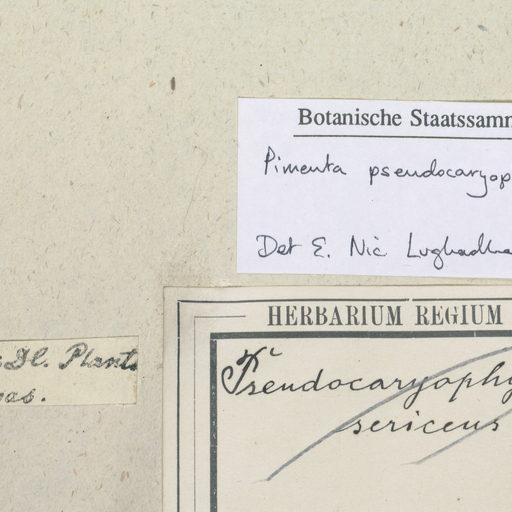 Botanische Staatssamm
Pimenta pseudocaryop
Det E. Nic Lughadha
HERBARIUM REGIUM
Pseudocaryophy
sericeus
Dl. Plants
as.